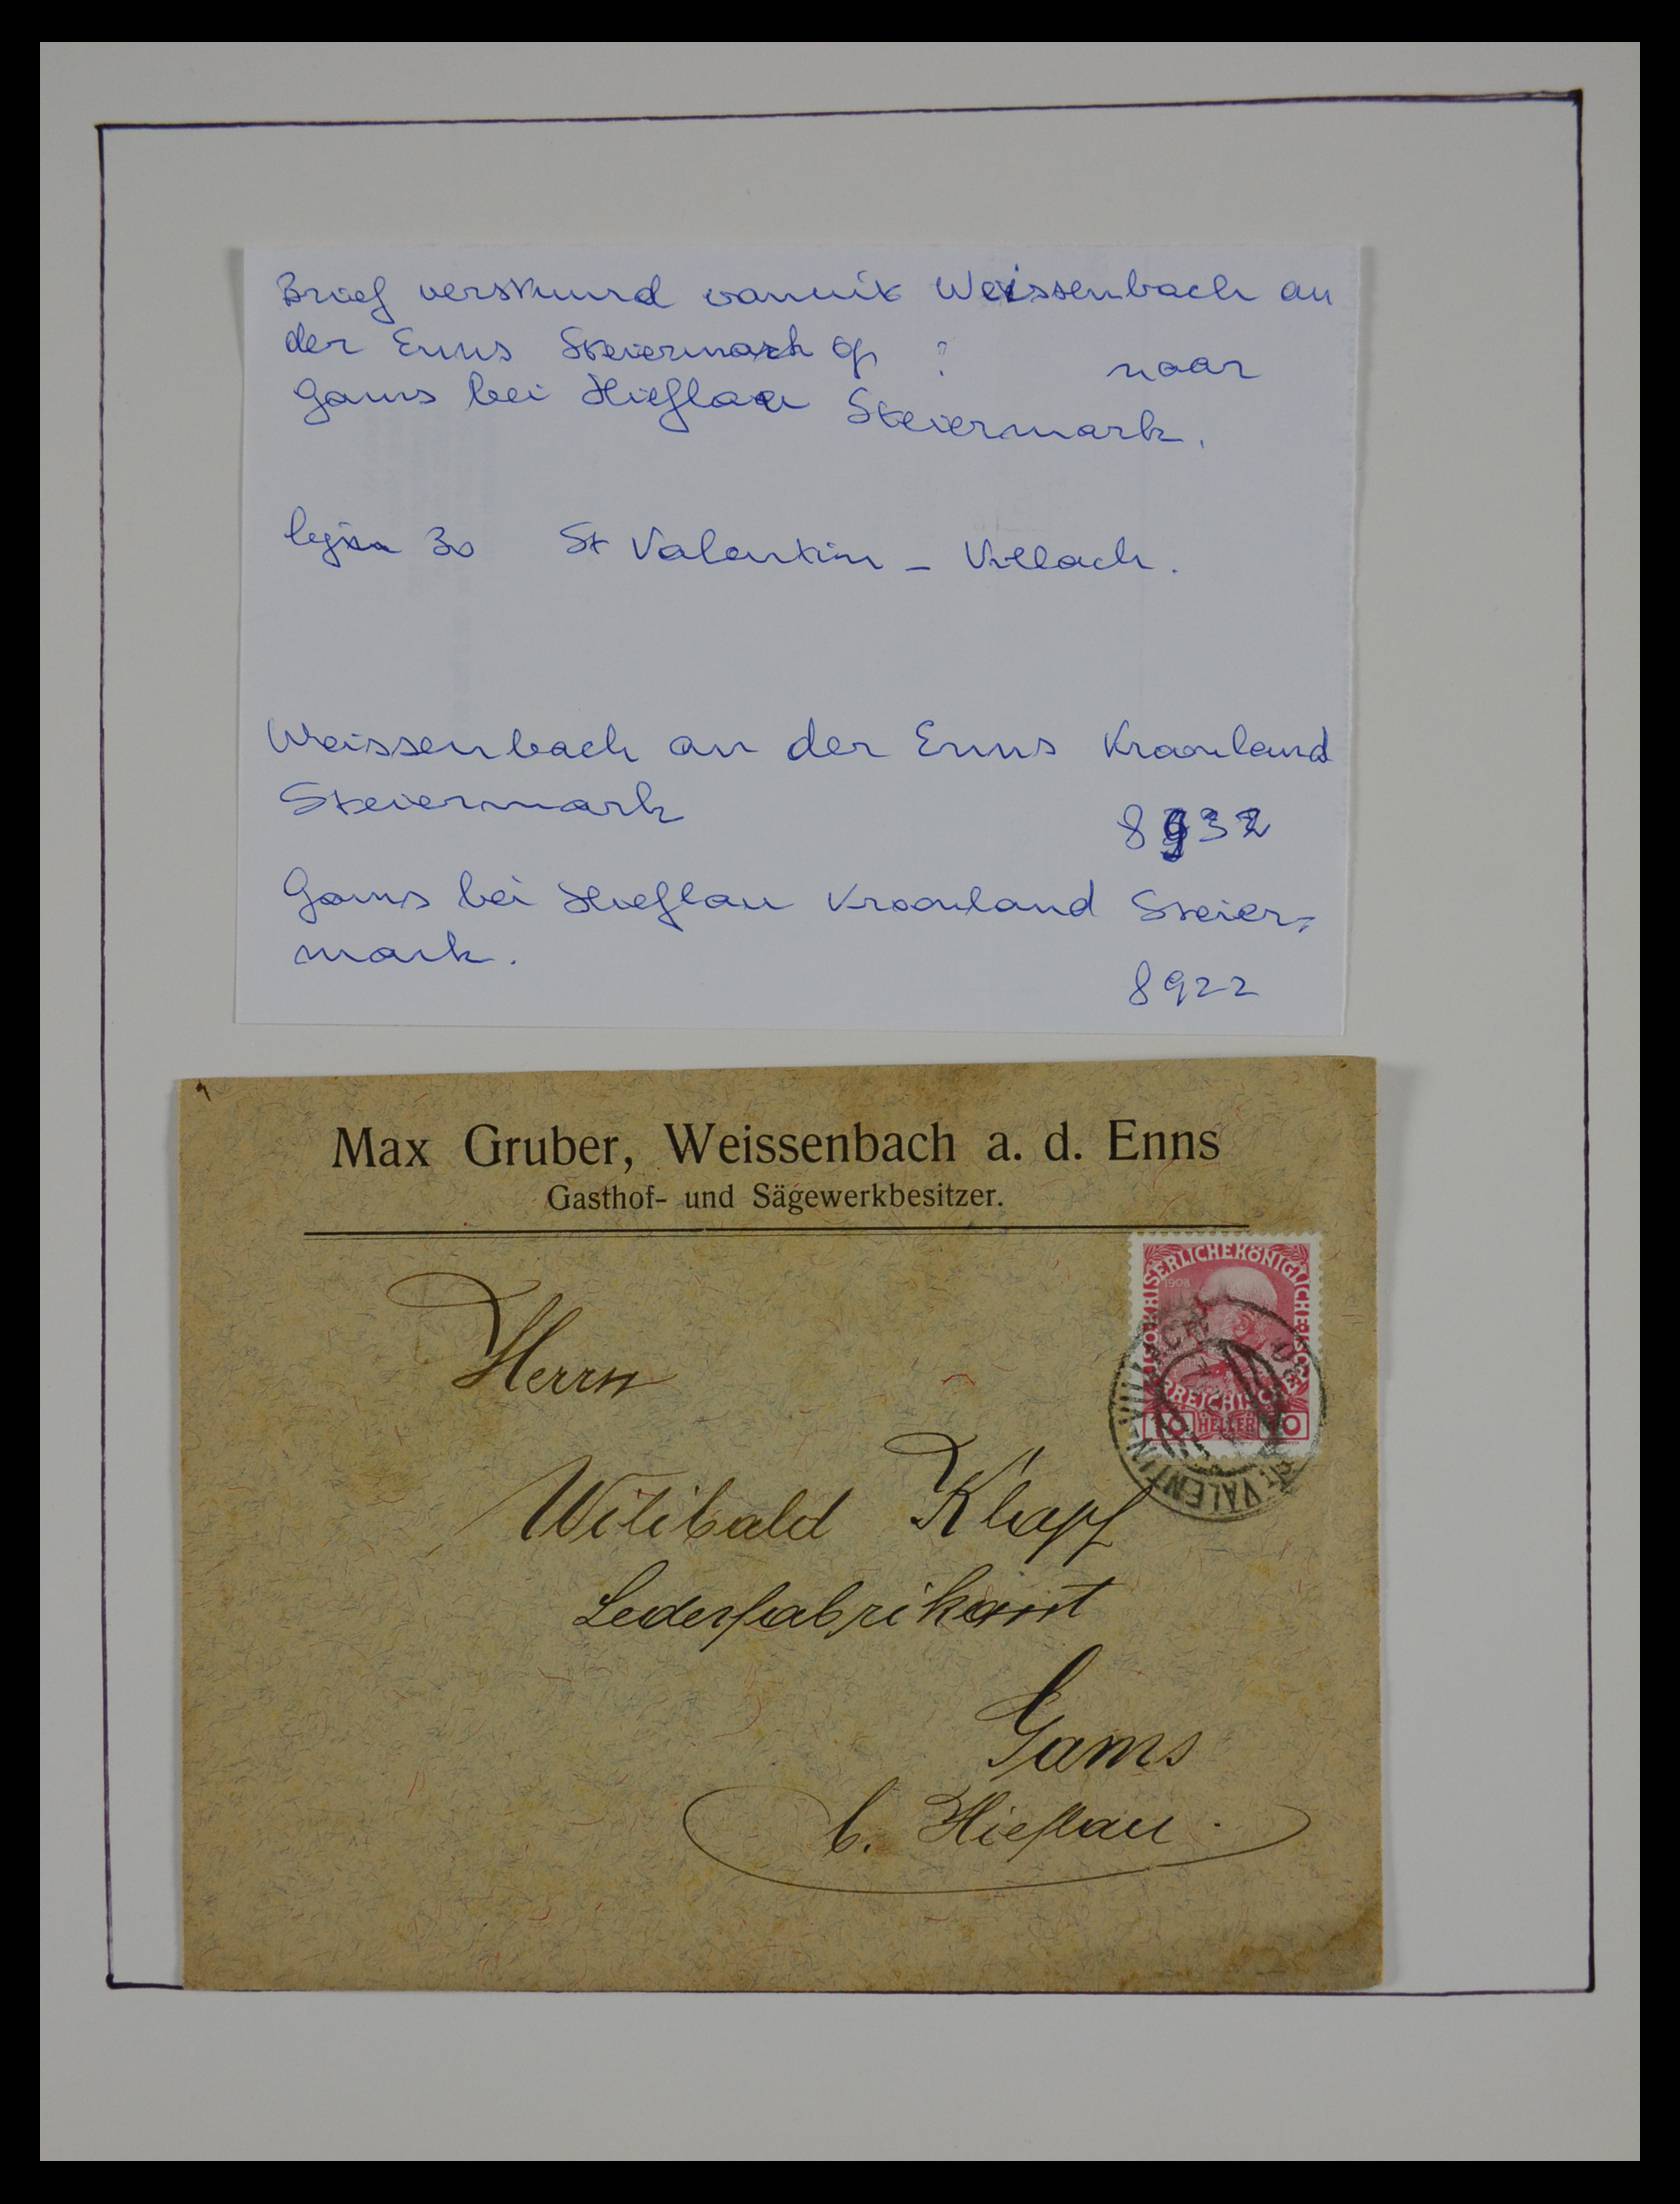 Brief verstuurd vanuit Weissenbach an
der Enns Steiermark op ? naar
Gams bei Hieflau Steiermark.
lijn 30 St Valentin – Villach.
Weissenbach an der Enns Kroonland
Steiermark
8932
Gams bei Hieflau Kroonland Steier=
mark.
8922
Max Gruber, Weissenbach a. d. Enns
Gasthof- und Sägewerkbesitzer.
KAISERLICHE KÖNIGLICHE
1908
10 HELLER 10
ST. VALENTIN-VILLACH
Herrn
Wilibald Klapf
Lederfabrikant
Gams
b. Hieflau.